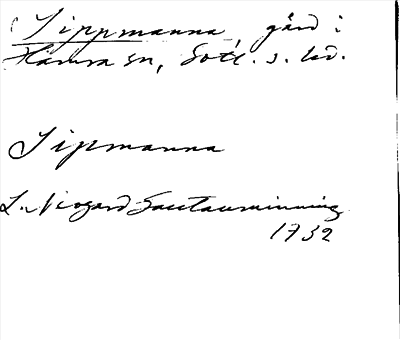 Sippmanna, gård i
Hamra sn, Gotl. s. hd.
Sipmanna
L. Neogard Gautauminning
1732